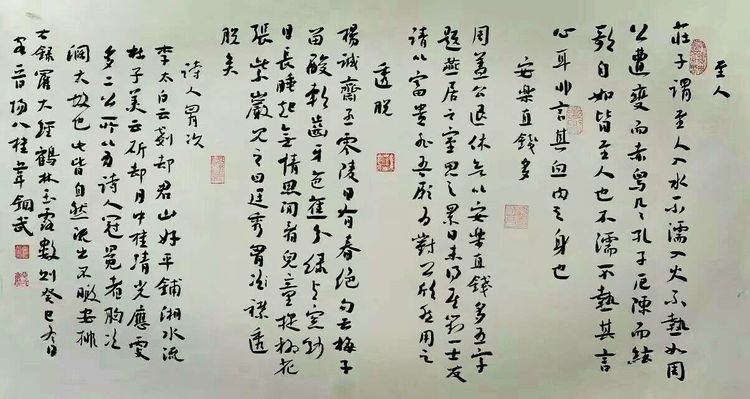 至人
莊子謂至人入水不濡入火不熱如周
公遭變而赤舄几几孔子厄陳而絃
歌自如皆至人也不濡不熱其言
心耳非言其血肉之身也
安樂直錢多
周益公退休欲以安樂直錢多五字
題燕居之室思之累日未得其對一士友
請以富貴非吾願為對公欣然用之
透脫
楊誠齋丞零陵日有春絕句云梅子
留酸軟齒牙芭蕉分綠與窗紗
日長睡起無情思閒看兒童捉柳花
張紫巖見之曰廷秀胸襟透
脫矣
詩人胸次
李太白云剗却君山好平鋪湘水流
杜子美云斫却月中桂清光應更
多二公所以為詩人冠冕者胸次
闊大故也此皆自然流出不暇安排
右錄羅大經鶴林玉露數則癸巳春日
晉陽八桂韋武